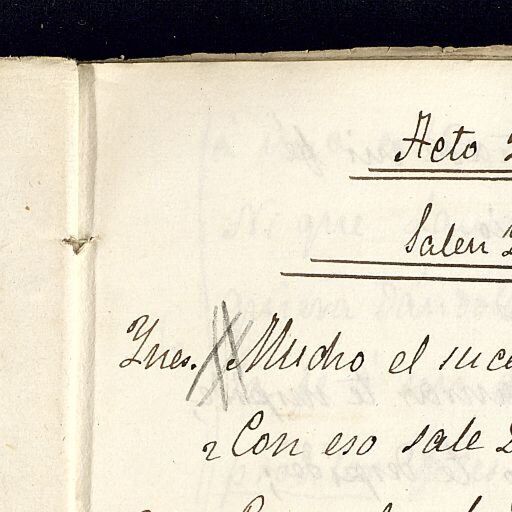 Acto
Salen
Ynes. Mucho el suce
¿Con eso sale